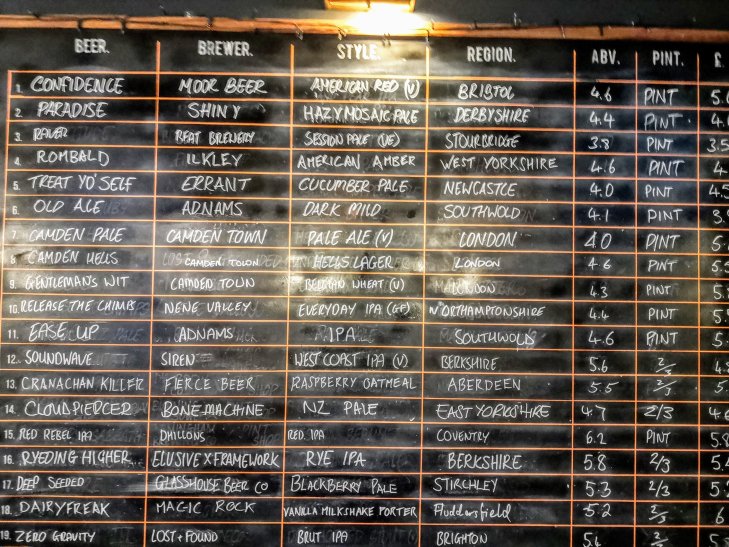 BEER. BREWER. STYLE. REGION. ABV. PINT. £.
1. CONFIDENCE MOOR BEER AMERICAN RED (V) BRISTOL 4.6 PINT
2. PARADISE SHINY HAZY MOSAIC PALE DERBYSHIRE 4.4 PINT
3. RAVER BEAT BREWERY SESSION PALE STOURBRIDGE 3.8 PINT 3.5
4. ROMBALD ILKLEY AMERICAN AMBER WEST YORKSHIRE 4.6 PINT
5. TREAT YO'SELF ERRANT CUCUMBER PALE NEWCASTLE 4.0 PINT
6. OLD ALE ADNAMS DARK MILD SOUTHWOLD 4.1 PINT
7. CAMDEN PALE CAMDEN TOWN PALE ALE (V) LONDON 4.0 PINT
8. CAMDEN HELLS CAMDEN TOWN HELLS LAGER LONDON 4.6 PINT
9. GENTLEMAN'S WIT CAMDEN TOWN BELGIAN WHEAT (V) LONDON 4.3 PINT
10. RELEASE THE CHIMPS NENE VALLEY EVERYDAY IPA (GF) NORTHAMPTONSHIRE 4.4 PINT
11. EASE UP ADNAMS IPA SOUTHWOLD 4.6 PINT
12. SOUNDWAVE SIREN WEST COAST IPA (V) BERKSHIRE 5.6 2/3
13. CRANACHAN KILLER FIERCE BEER RASPBERRY OATMEAL ABERDEEN 5.5 2/3
14. CLOUDPIERCER BONE MACHINE NZ PALE EAST YORKSHIRE 4.7 2/3
15. RED REBEL IPA DHILLONS RED IPA COVENTRY 6.2 PINT 5.8
16. RYEDING HIGHER ELUSIVE X FRAMEWORK RYE IPA BERKSHIRE 5.8 2/3
17. DEEP SEEDED GLASSHOUSE BEER CO BLACKBERRY PALE STIRCHLEY 5.3 2/3
18. DAIRYFREAK MAGIC ROCK VANILLA MILKSHAKE PORTER Huddersfield 5.2 2/3 6
19. ZERO GRAVITY LOST + FOUND BRUT IPA BRIGHTON